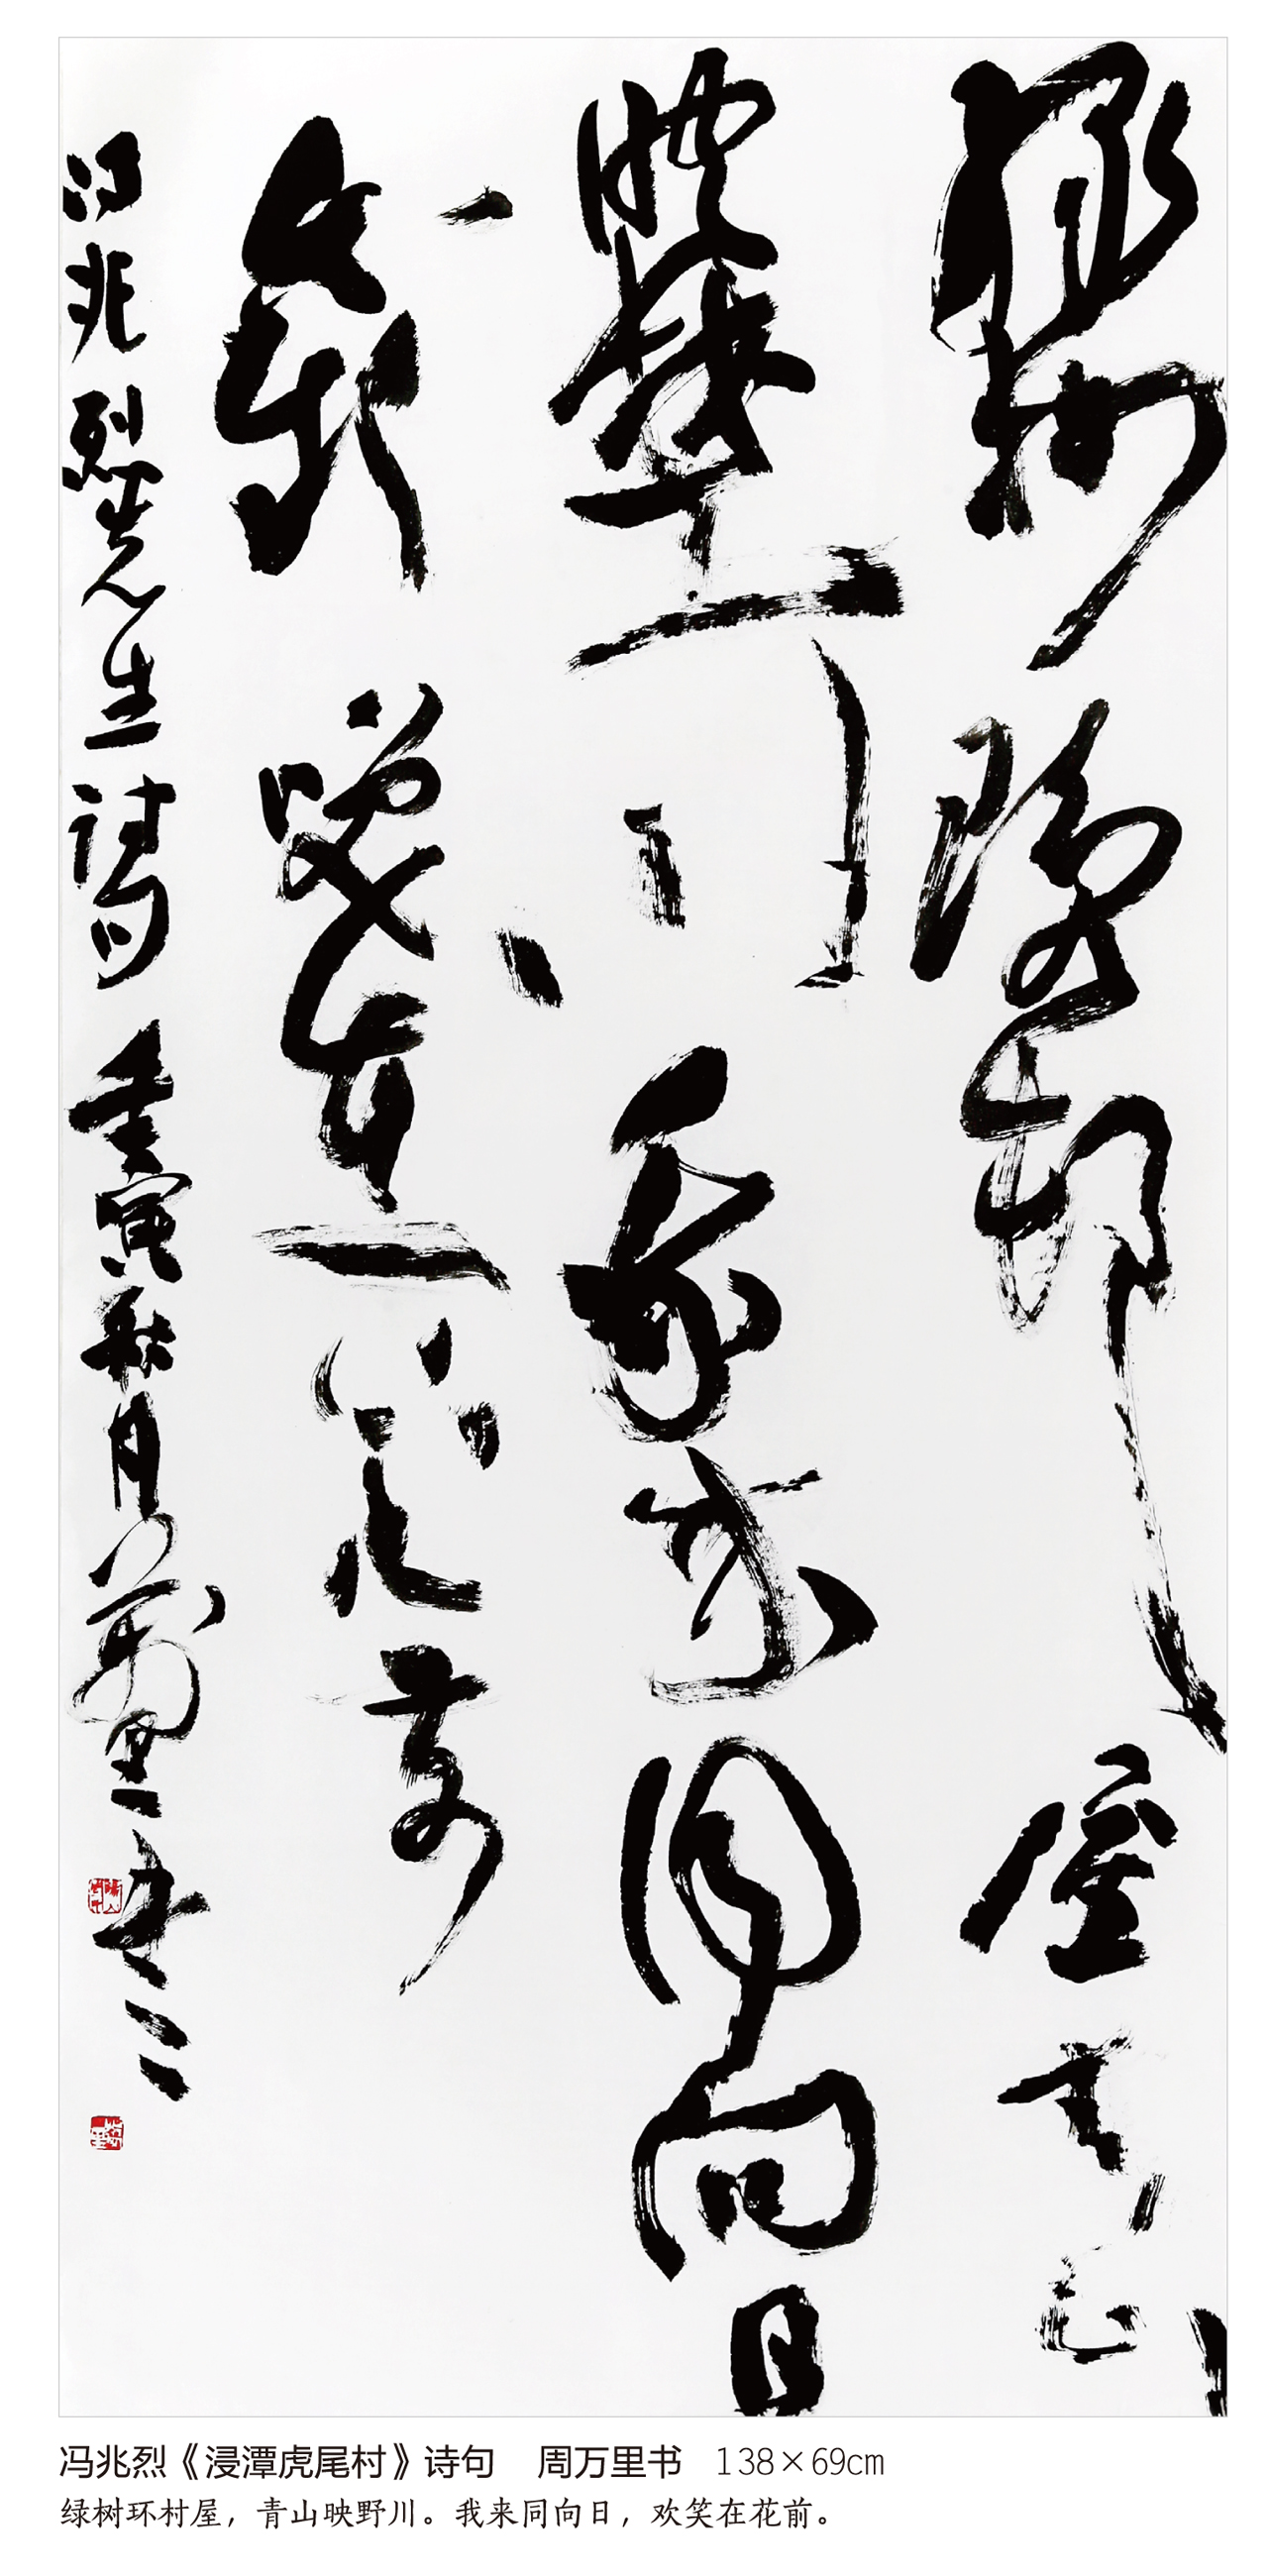 綠樹環邨屋青山
映埜川我来同向日
歡笑在花前
冯兆烈先生詩句 壬寅秋月萬里書
冯兆烈《浸潭虎尾村》诗句 周万里书 138×69cm
绿树环村屋，青山映野川。我来同向日，欢笑在花前。